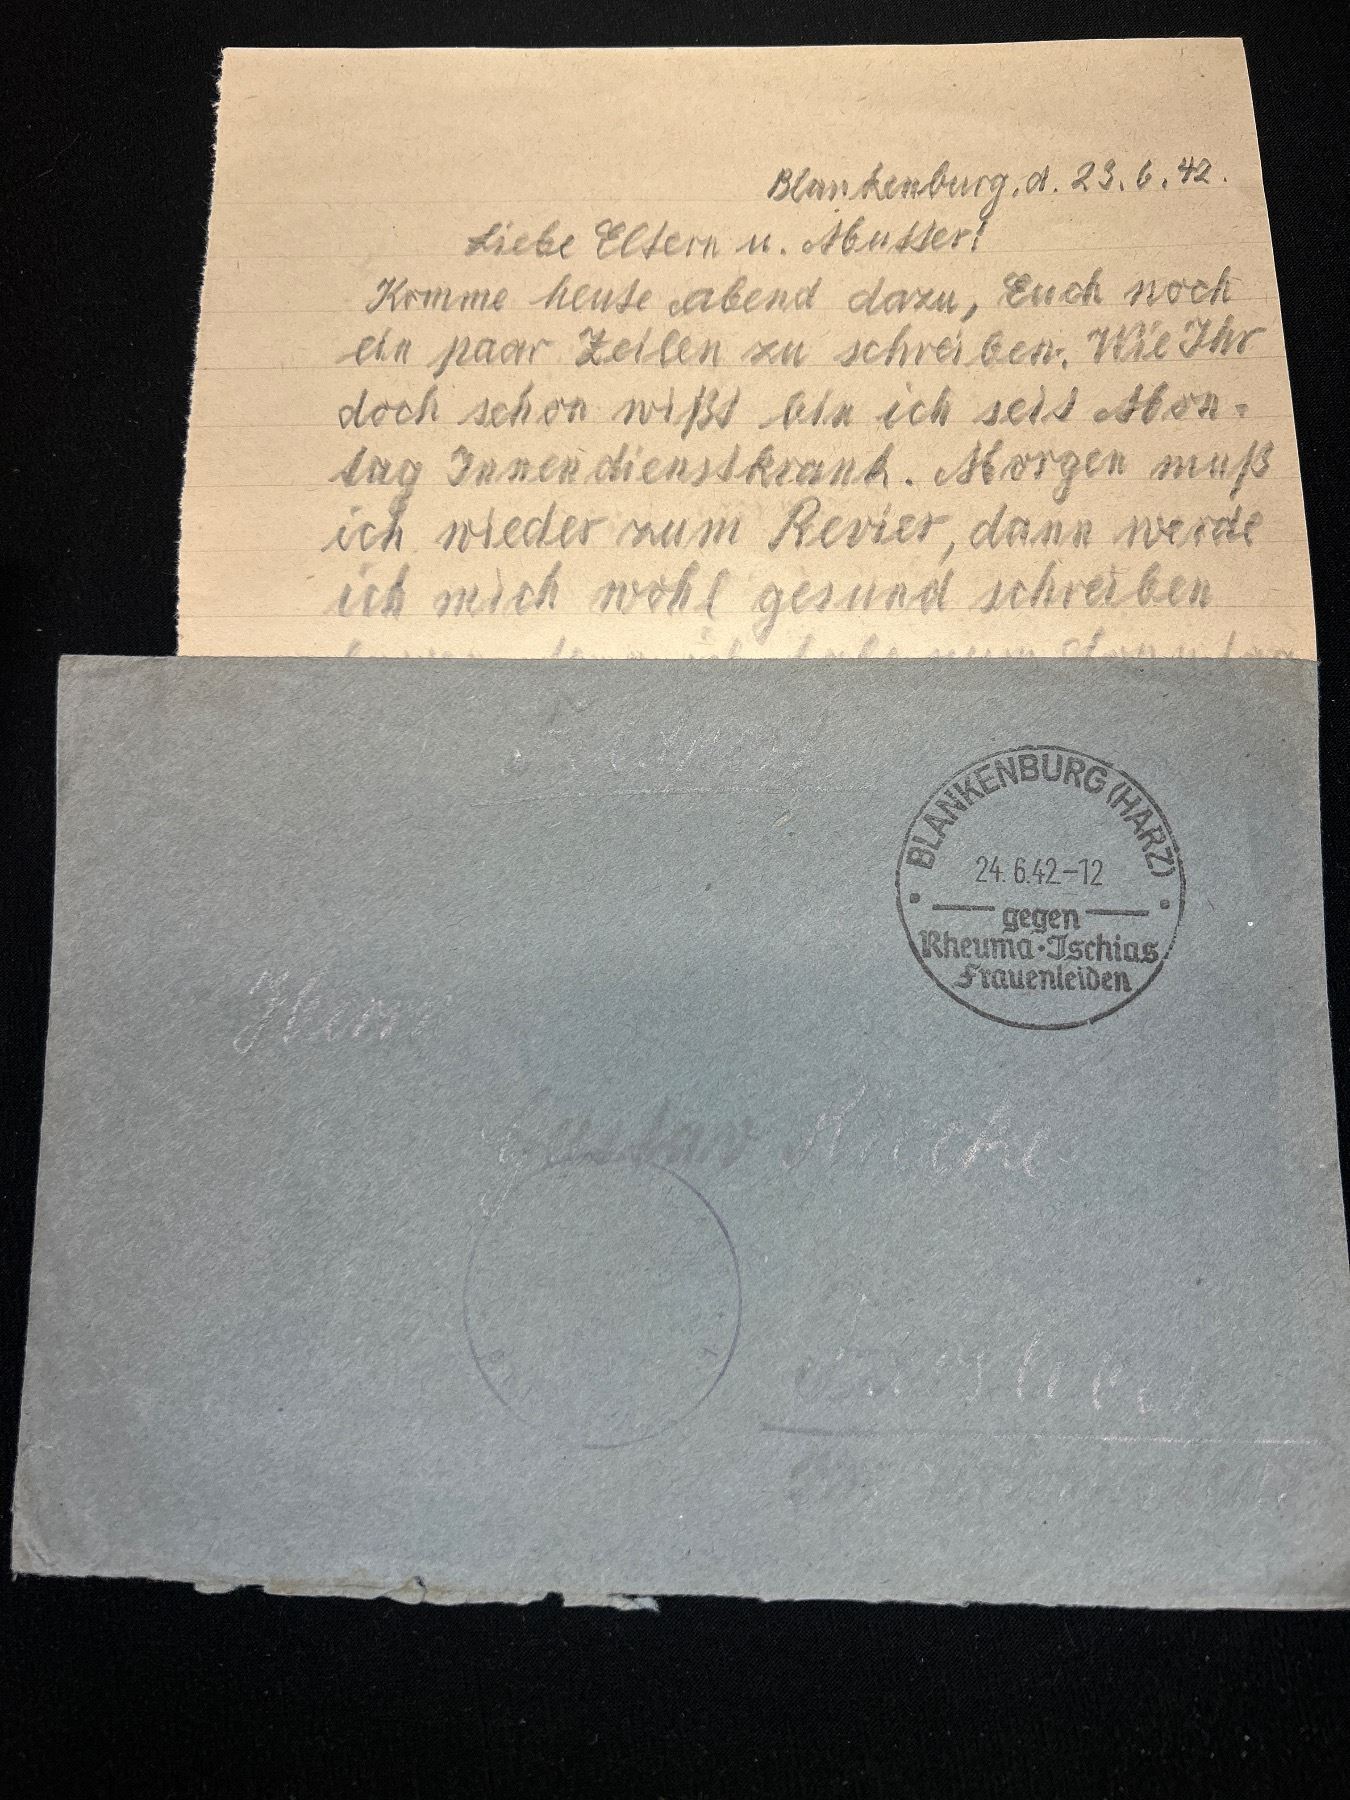 Blankenburg, d. 23.6.42.
Liebe Eltern u. Mutter!
Komme heute abend dazu, Euch noch
ein paar Zeilen zu schreiben. Wie Ihr
doch schon wißt bin ich seit Mon-
tag Innendienstkrank. Morgen muß
ich wieder zum Revier, dann werde
ich mich wohl gesund schreiben
ich habe zum Sonntag
BLANKENBURG (HARZ)
24.6.42-12
gegen
Rheuma·Ischias
Frauenleiden
Herrn
Gustav